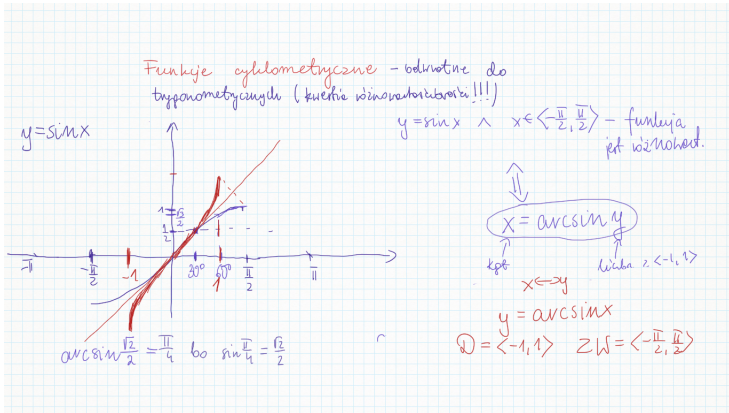 Funkcje cyklometryczne – odwrotne do
trygonometrycznych (kwestia różnowartościowości!!!)
y=sinx
y=sinx ∧ x∈⟨-π/2, π/2⟩ – funkcja
jest różnowart.
⇕
x = arcsin y
kąt
liczba z ⟨-1,1⟩
x↔y
y = arcsinx
D = ⟨-1,1⟩ ZW = ⟨-π/2, π/2⟩
1
√2/2
1/2
-π -π/2 -1 30° 60° 1 π/2 π
arcsin √2/2 = π/4 bo sin π/4 = √2/2